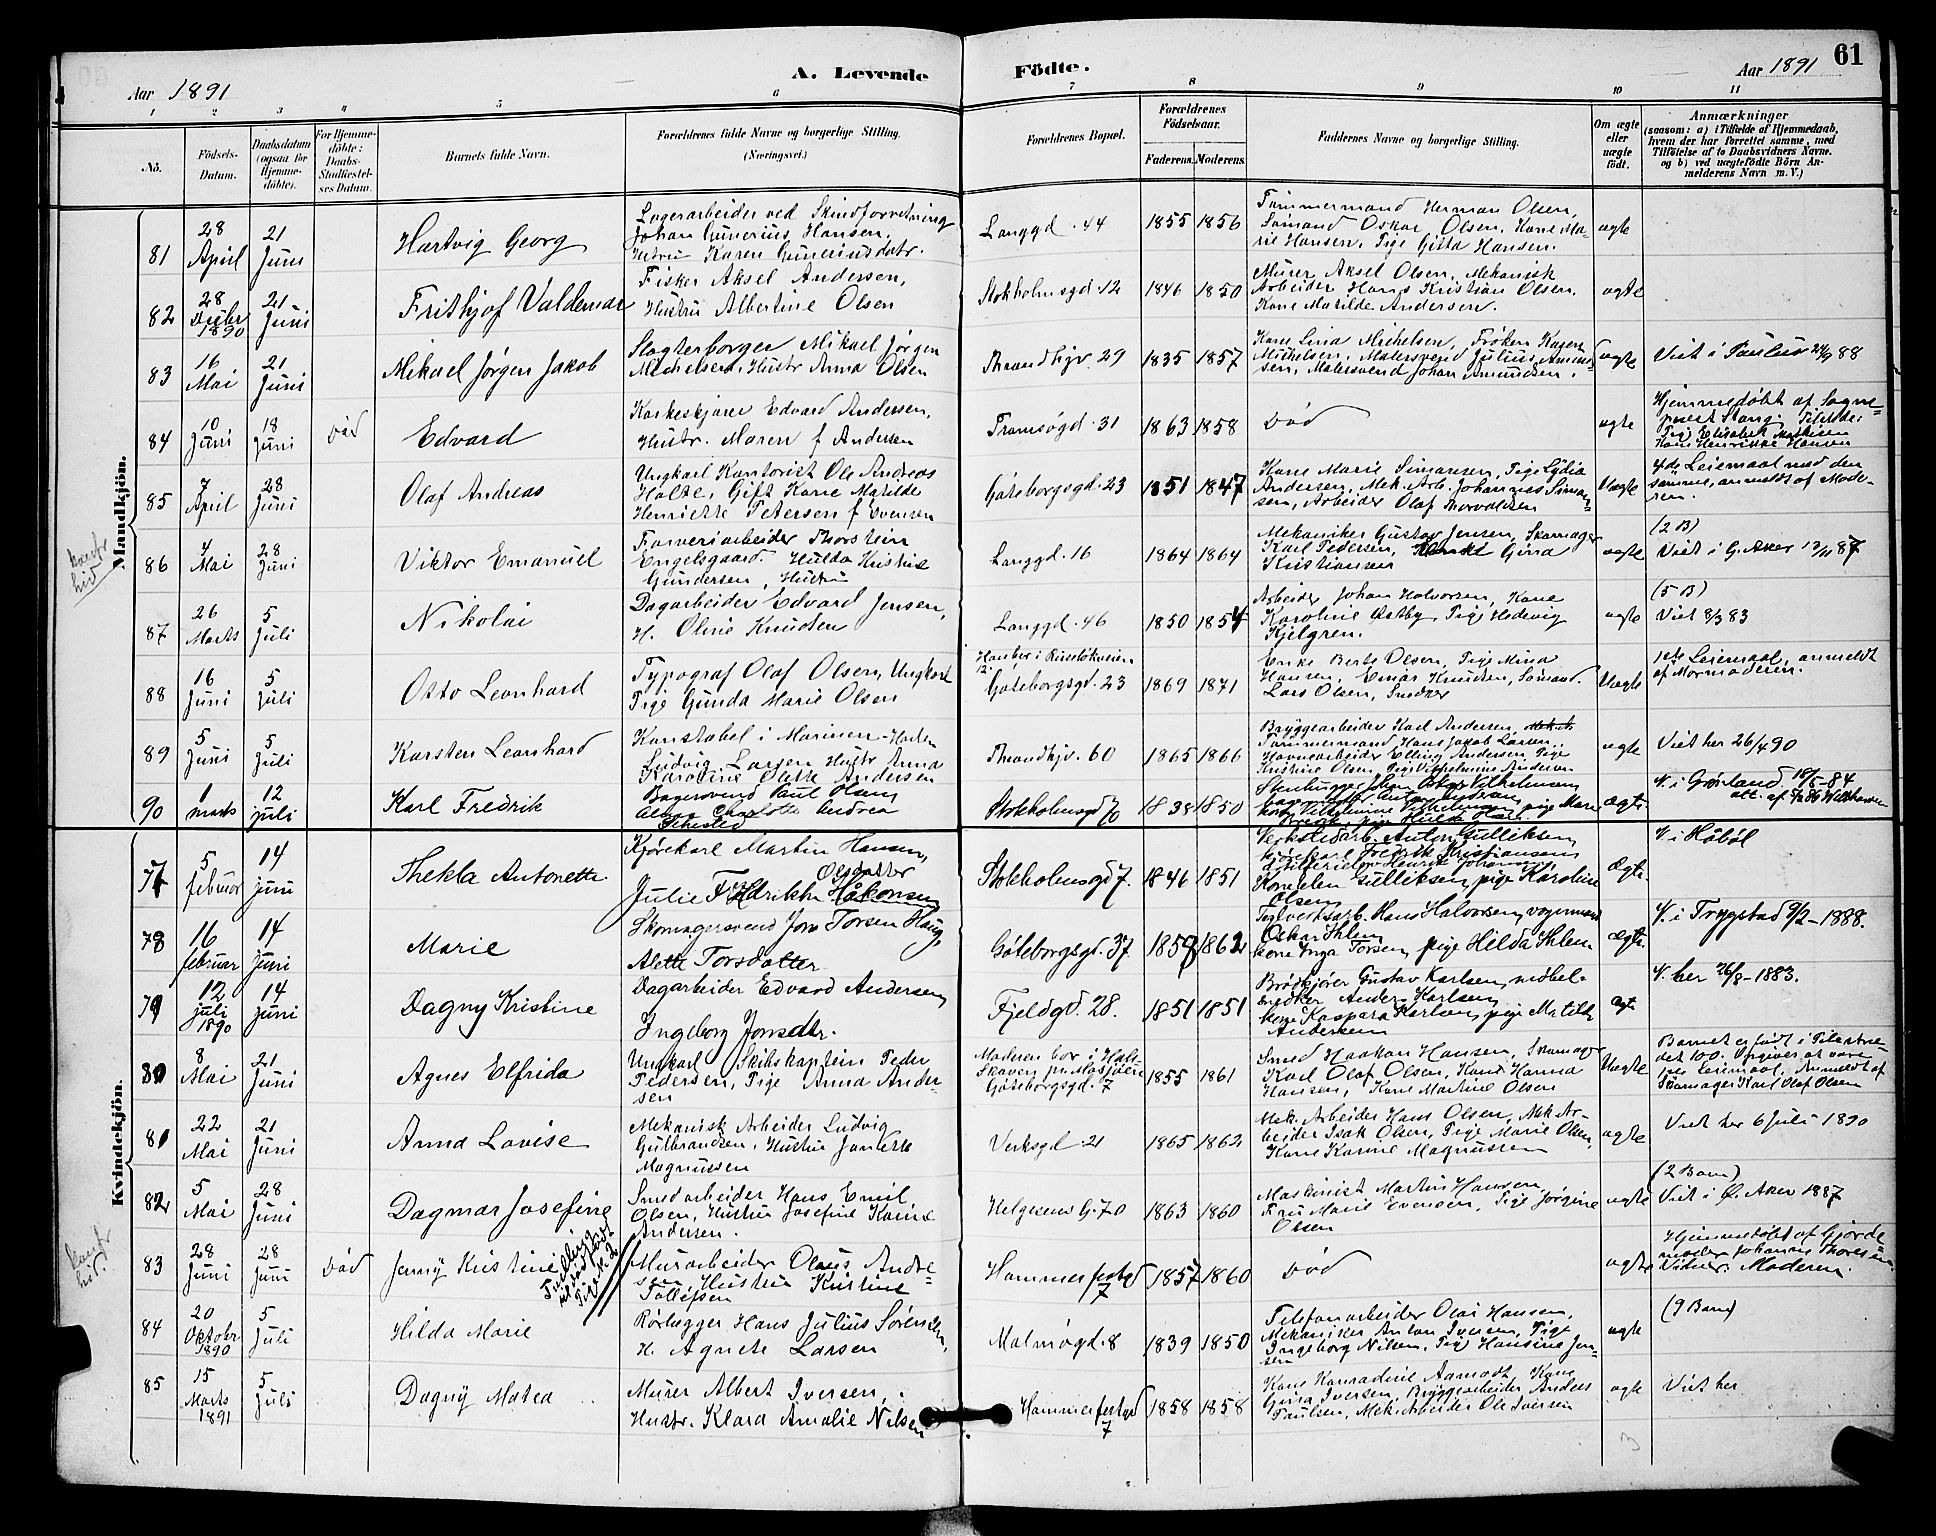 61
Aar 1891
A. Levende
Födte.
Aar 1891
1 2 3 4 5 6 7 8 9 10 11
No.
Födsels-
Datum.
Daabsdatum
(ogsaa for
Hjemme-
döbte).
For Hjemme-
döbte:
Daabs-
Stadfæstel-
ses Datum.
Barnets fulde Navn.
Forældrenes fulde Navne og borgerlige Stilling.
(Næringsvei.)
Forældrenes Bopæl.
Forældrenes
Födselsaar.
Faderens. Moderens.
Faddernes Navne og borgerlige Stilling.
Om ægte
eller
uægte
födt.
Anmærkninger
(saasom: a) i Tilfælde af Hjemmedaab,
hvem der har forrettet samme, med
Tilföielse af to Daabsvidners Navne,
og b) ved uægtefödte Börn An-
melderens Navn m. V.)
Mandkjön.
81
28
April
21
Juni
Hartvig Georg
Lagerarbeider ved Skindforretning
Johan Gunerius Hansen,
Hustru Karen Gunerius datr.
Langgd. 44
1855 1856
Tømmermand Herman Olsen,
Sømand Oskar Olsen, Kone Ma-
rie Hansen, Pige Gitta Hansen.
ægte
82
28
Decbr
1890
21
Juni
Frithjof Valdemar
Fisker Aksel Andersen,
Hustru Albertine Olsen
Stokholmsgd. 12
1846 1850
Murer Aksel Olsen, Mekanisk
Arbeider Hans Kristian Olsen.
Kone Matilde Andersen.
ægte
83
16
Mai
21
Juni
Mikael Jørgen Jakob
Slagterborger Mikael Jørgen
Michelsen, Hustr Anna Olsen
Thrandhjv. 29
1835 1857
Kone Lina Michelsen, Frøken Kagen
Michelsen, Malersvend Julius Amund-
sen, Malersvend Johan Amundsen.
ægte
Viet i Paulus 24/9 88
84
10
Juni
18
Juni
Død
Edvard
Korkeskjærer Edvard Andersen,
Hustr. Maren f Andersen
Tromsøgd. 31
1863 1858
Død
ægte
Hjemmedøbt af Sogne-
præst Stang. Tilstede:
Pige Elisabeth Mathisen
Kone Henrikke Hansen
85
7
April
28
Juni
Olaf Andreas
Ungkarl Kontorist Ole Andreas
Holte, Gift Kone Matilde
Henriette Petersen f Svensen
Gøteborgsgd. 23
1851 1847
Kone Marie Simonsen, Pige Lydia
Andersen, Mek. Arb. Johannes Simon-
sen, Arbeider Olaf Thorvaldsen
Uægte
4de Leiemaal med den
samme, anmeldt af Mode-
ren.
86
4
Mai
28
Juni
Viktor Emanuel
Farveriarbeider Thorstein
Engelsgaard. Hulda Kristine
Gundersen, Hustru
Langgd. 16
1864 1864
Mekaniker Gustav Jensen, Skomager
Karl Pedersen, Gina
Kristiansen
ægte
(2 B)
Viet i G. Aker 13/11 87
87
26
Marts
5
Juli
Nikolai
Dagarbeider Edvard Jensen,
H. Oline Knudsen
Langgd. 46
1850 1854
Arbeider Johan Halvorsen, Kone
Karoline Østby, Pige Hedevig
Kjelgren.
ægte
(5 B)
Viet 8/3 83
88
16
Juni
5
Juli
Otto Leonhard
Typograf Olaf Olsen, Ungkarl
Pige Gunda Marie Olsen
Gøteborgsgd. 23
1869 1871
Enke Berte Olsen, Pige Mina
Hansen, Einar Knudsen, Sømand.
Lars Olsen, Snedker
Uægte
1ste Leiemaal, anmeldt
af Mormoderen.
89
5
Juni
5
Juli
Karsten Leonhard
Konstabel i Marinen-Horten
Ludvig Larsen Hustr Anna
Karoline Olette Andersen
Thrandhjv. 60
1865 1866
Bryggearbeider Karl Andersen,
Tømmermand Hans Jakob Larsen,
Havnearbeider Elling Andersen, Pige
Kristine Olsen, Pige Vilhelmine Andersen
ægte
Viet her 26/4 90
90
1
marts
12
juli
Karl Fredrik
Bagersvend Paul Hans
Charlotte Andrea
Sehested
Stokholmsgd 70
1838 1850
ægte
V. i Grønland 18/5-84
Kvindekjön.
77
5
februar
14
juni
Thekla Antonette
Kjørekarl Martin Hansen,
Olsdatter
Julie Fredrikke Håkonsen
Stokholmsgd 7.
1846 1851
Verkstedarb. Anton Gulliksen,
kjørekarl Fredrik Kristiansen,
Kone Elen Gulliksen, pige Karoline
Olsen
Ægte
V. i Håbøl
78
16
februar
14
juni
Marie
Skomagersvend Jon Torsen Haug,
Alette Torsdatter
Gøteborgsgd. 37.
1859 1862
Teglverksarb. Hans Halvorsen, vognmand
Oskar Ihlen
kone Inga Torsen, pige Hilda Ihlen
Ægte
V. i Trygstad 9/2-1888.
79
12
juli
1890
14
juni
Dagny Kristine
Dagarbeider Edvard Andersen,
Ingeborg Jonsdtr.
Fjeldgd. 28.
1851 1851
Brødkjører Gustav Karlsen, møbel-
snedker Anders Karlsen,
kone Kaspara Karlsen, pige Matilde
Andersen
Ægte
V. her 26/8-1883.
80
8
Mai
21
Juni
Agnes Elfrida
Ungkarl Skibskaptein Peder
Pedersen, Pige Anna Ander-
sen
Moderen bor i Hals-
Skaven pr. Mosjøen
Gøteborgsgd. 7
1855 1861
Smed Haakon Hansen, Skomager
Karl Olaf Olsen, Kone Hanna
Hansen, Kone Martine Olsen
Uægte
Barnet er født i Pilestræ-
det 100. Opgives at være
1ste Leiemaal. Anmeldt af
Skomager Karl Olaf Olsen
81
22
Mai
21
Juni
Anna Lovise
Mekanisk Arbeider Ludvig
Gulbrandsen, Hustru Janette
Magnussen
Verksgd. 21
1865 1862
Mek. Arbeider Hans Olsen, Mek Ar-
beider Isak Olsen, Pige Marie Olsen,
Kone Karine Magnussen
ægte
Viet her 6 Juli 1890
82
5
Mai
28
Juni
Dagmar Josefine
Smedarbeider Hans Emil
Olsen, Hustru Josefine Karine
Andersen.
Helgesens G. 70
1863 1860
Maskinist Martin Hansen,
Fru Marie Evensen, Pige Jørgine
Olsen
ægte
(2 Barn)
Viet i Ø. Aker 1887
83
28
Juni
28
Juni
Død
Jenny Kristine
Murarbeider Olaus Andre-
sen, Hustru Kristine
Tollefsen
Hammerfestgd
7
1857 1860
Død
ægte
Hjemmedøbt af Gjorde-
moder Johanne Thoresen
Vidner: Moderen.
84
20
Oktober
1890
5
Juli
Hilda Marie
Rørlægger Hans Julius Sørensen,
H. Agnete Larsen
Malmøgd. 8
1839 1850
Telefonarbeider Olai Hansen,
Mekaniker Anton Iversen, Pige
Ingeborg Nilsen, Pige Hansine Jen-
sen
ægte
(9 Barn)
85
15
Marts
1891
5
Juli
Dagny Matea
Murer Albert Iversen,
Hustr. Klara Amalie Nilsen
Hammerfestgd
7
1858 1858
Kone Konradine Aamodt, Kone
Gina Iversen, Bryggearbeider Anders
Paulsen, Mek. Arbeider Ole Iversen
ægte
Viet her